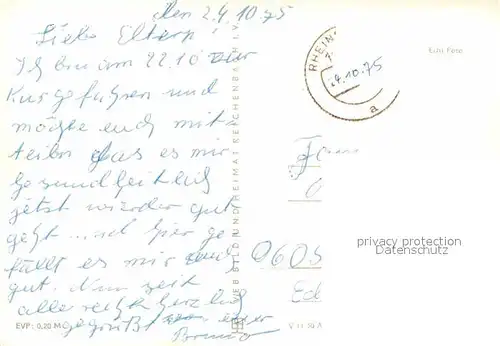 den 24.10.75
Liebe Eltern!
Ich bin am 22.10 zur
Kur gefahren und
möchte euch mit
teilen das es mir
gesundheitlich
jetzt wieder gut
geht... hier ge
fällt es mir
gut. Nun seit
alle recht herzlich
gegrüßt von euer
Bruno
EVP: 0,20 M
VEB BILD UND HEIMAT REICHENBACH I. V.
RHEIN
24.10.75
a
Echt Foto
Fam
0605
privacy protection
Datenschutz